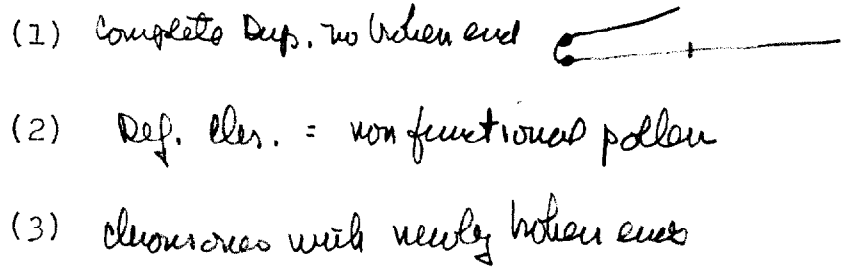 (1) Complete Dup. no broken end
(2) Def. Chr. = non functional pollen
(3) chromosomes with newly broken ends